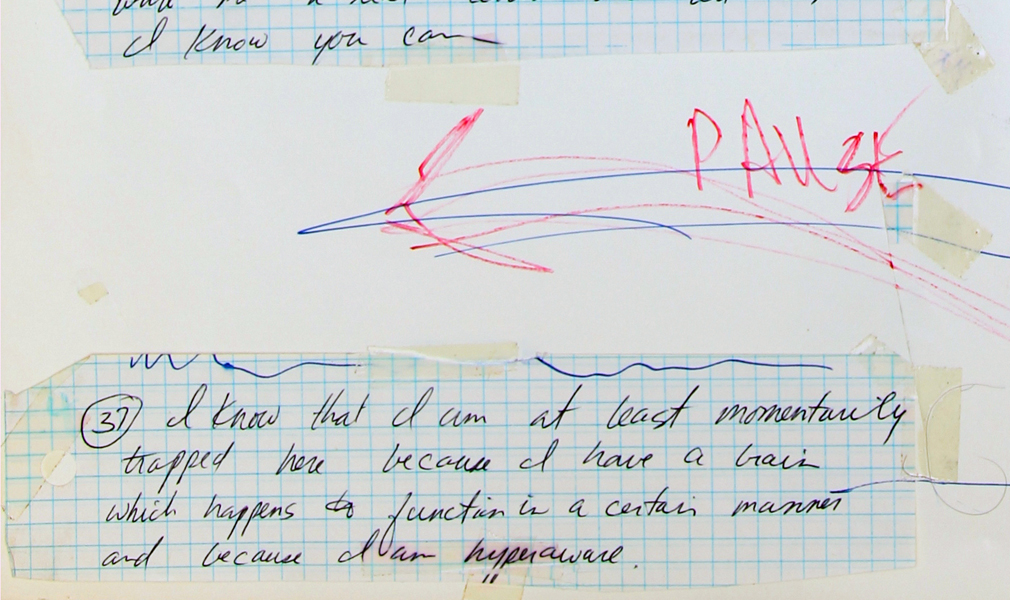 I know you can
PAUSE
37 I know that I am at least momentarily
trapped here because I have a brain
which happens to function in a certain manner
and because I am hyperaware.